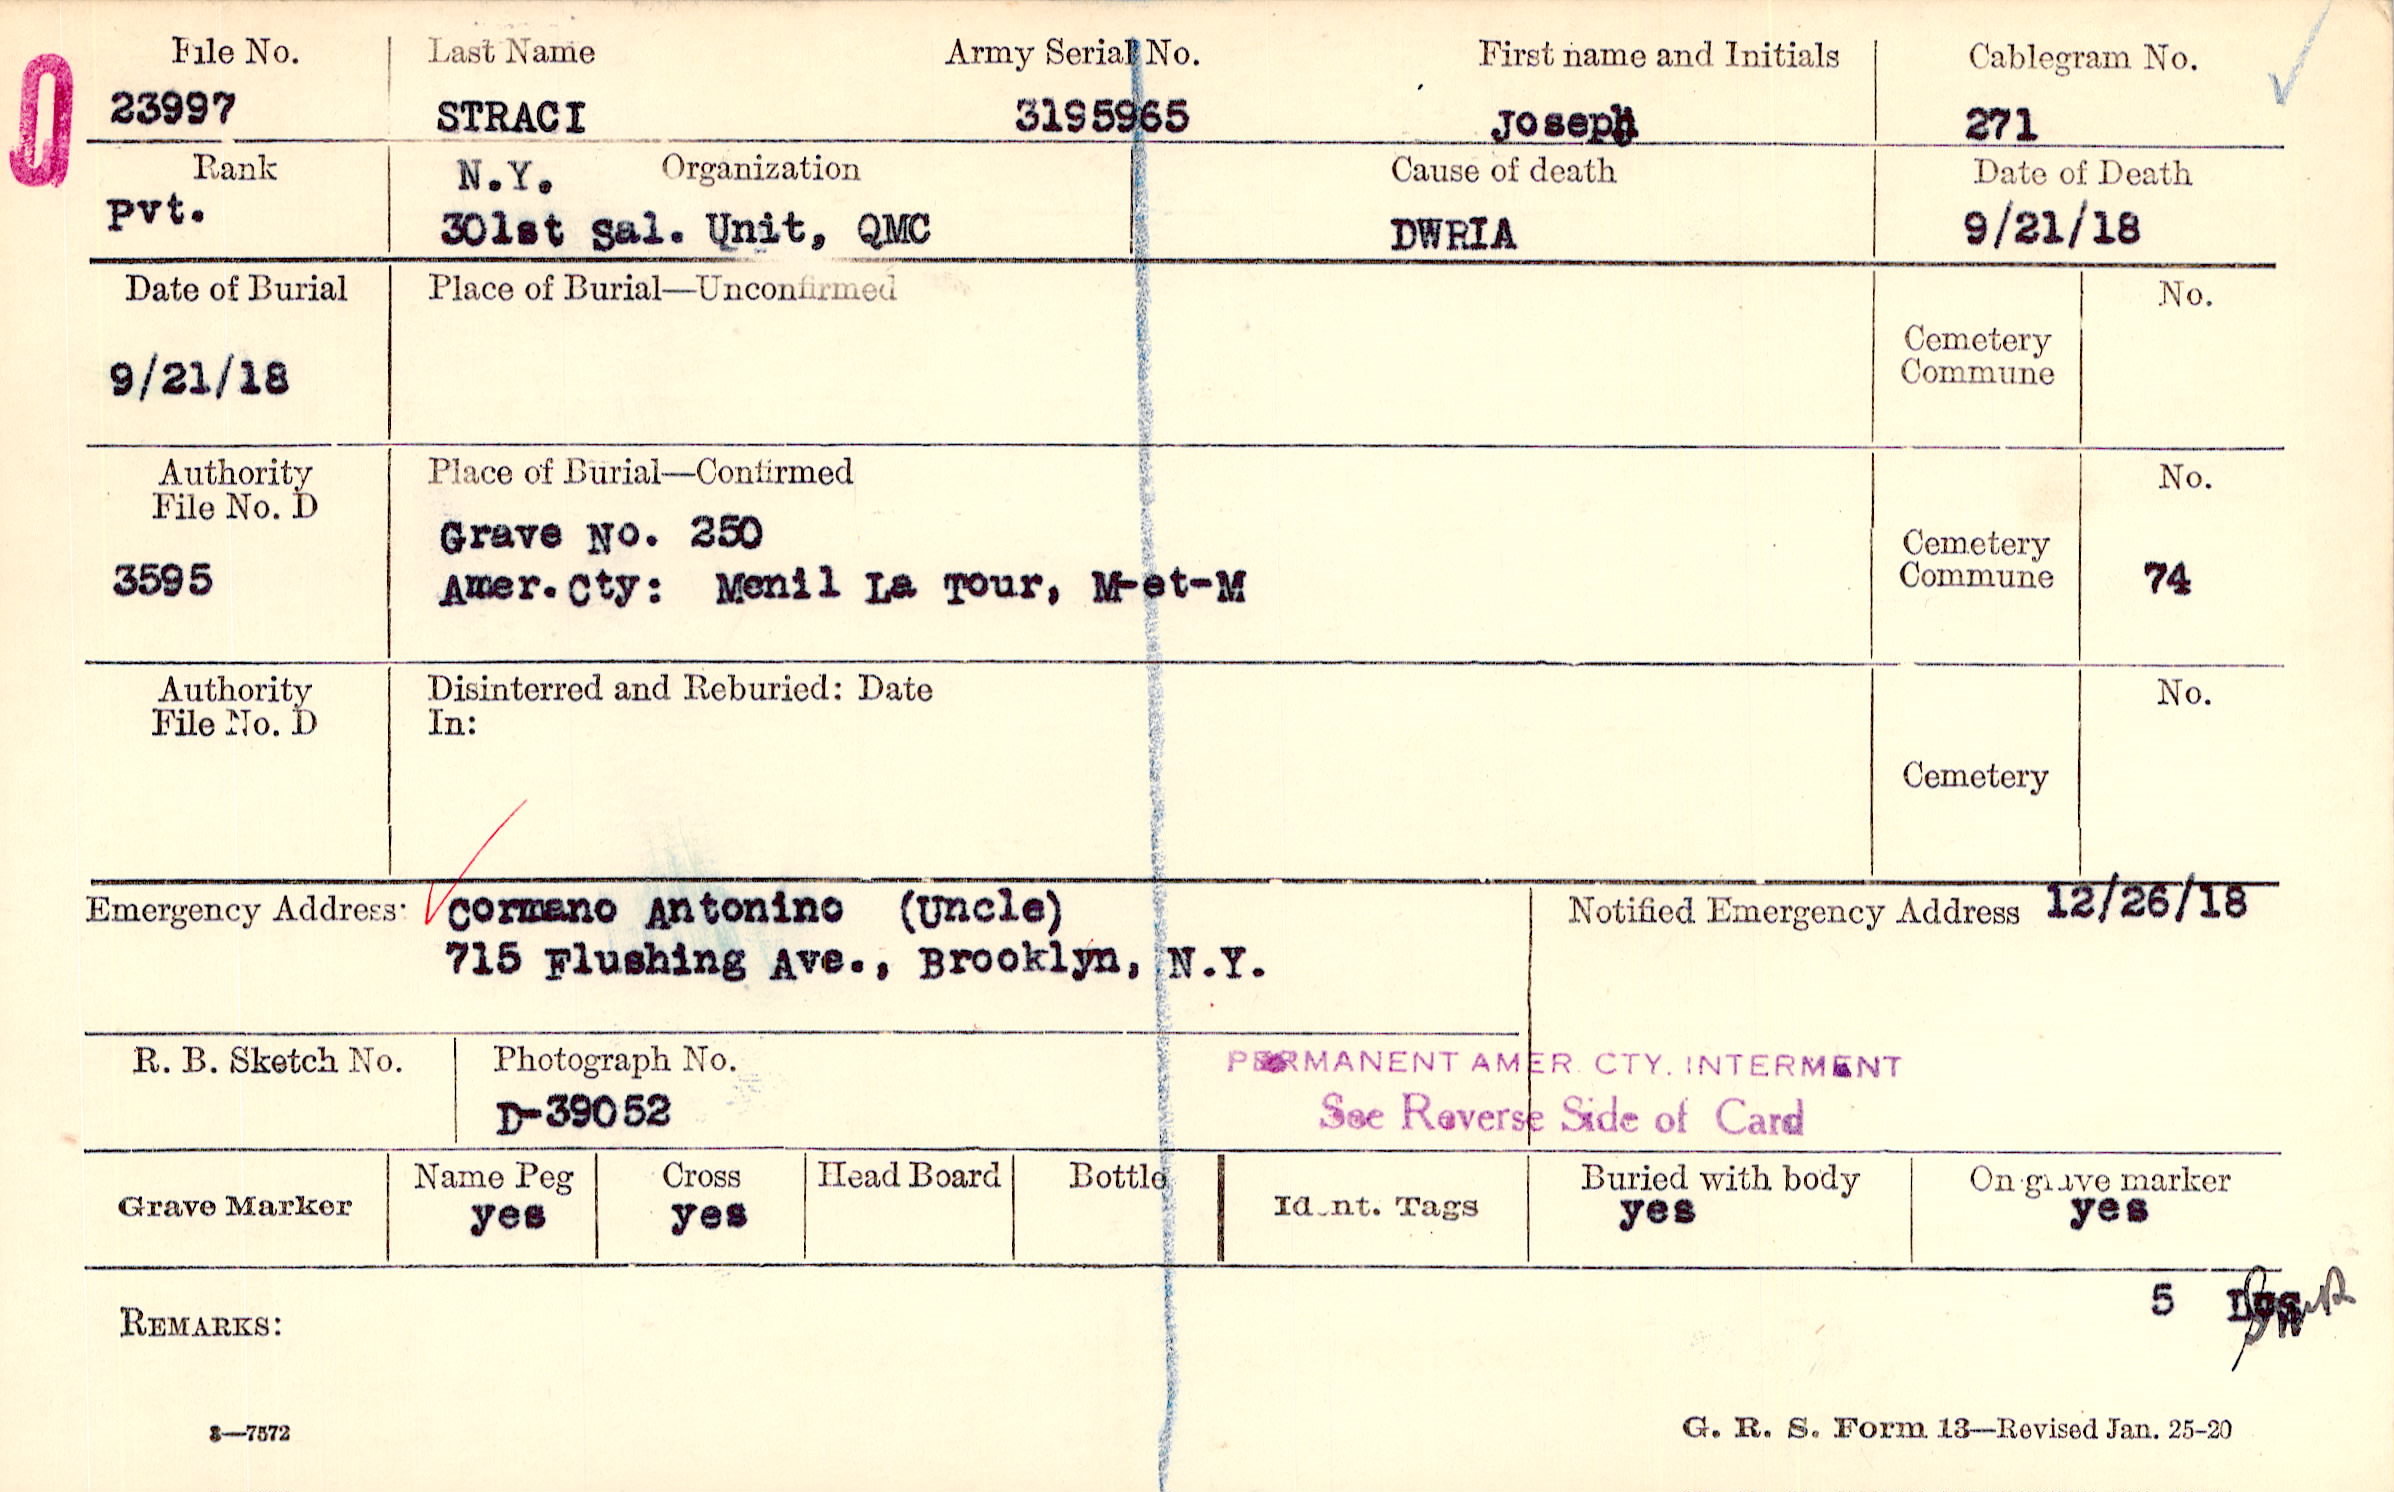 0
File No. Last Name Army Serial No. First name and Initials Cablegram No.
23997 STRACI 3195965 Joseph 271
Rank N.Y. Organization Cause of death Date of Death
Pvt. 301st Sal. Unit, QMC DWRIA 9/21/18
Date of Burial Place of Burial—Unconfirmed No.
Cemetery
Commune
9/21/18
Authority Place of Burial—Confirmed No.
File No. D
Grave No. 250
Cemetery
3595 Amer. Cty: Menil La Tour, M-et-M Commune 74
Authority Disinterred and Reburied: Date No.
File No. D In:
Cemetery
Emergency Address: Cormano Antonino (Uncle) Notified Emergency Address 12/26/18
715 Flushing Ave., Brooklyn, N.Y.
R. B. Sketch No. Photograph No. PERMANENT AMER. CTY. INTERMENT
D-39052 See Reverse Side of Card
Grave Marker Name Peg Cross Head Board Bottle Ident. Tags Buried with body On grave marker
yes yes yes yes
5
REMARKS:
3—7572 G. R. S. Form 13—Revised Jan. 25-20